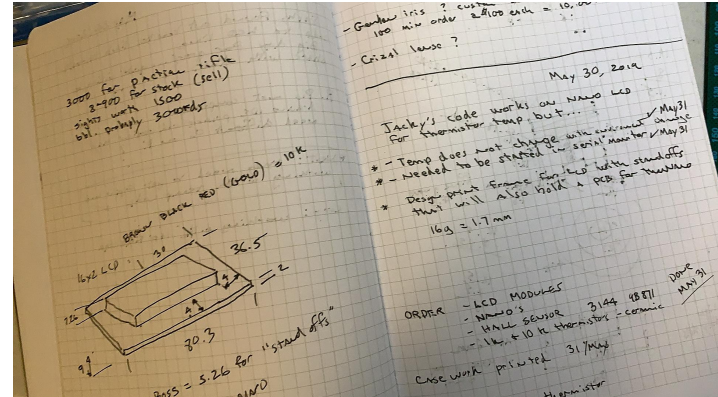 3000 for practice rifle
3-900 for stock (sell)
sights worth 1500
bbl. probably 3000 rds
BROWN BLACK RED (GOLD) = 10K
16x2 LCD
30
36.5
2
80.3
Boss = 5.26 for "stand offs"
- Garden iris ?
100 min order
each = 10,
- Crizal lense ?
May 30, 2019
Jacky's code works on Nano LCD
for thermistor temp but...
* - Temp does not change with environment change ✓ May 31
* - Needed to be started in serial monitor ✓ May 31
* Design print frame for LCD with standoffs
that will also hold a PCB for the Nano
16g = 1.7 mm
ORDER - LCD MODULES
- NANO'S
- HALL SENSOR 3144
- 1k, + 10 k thermistors - ceramic
DONE
MAY 31
Case work printed 31/May
thermistor